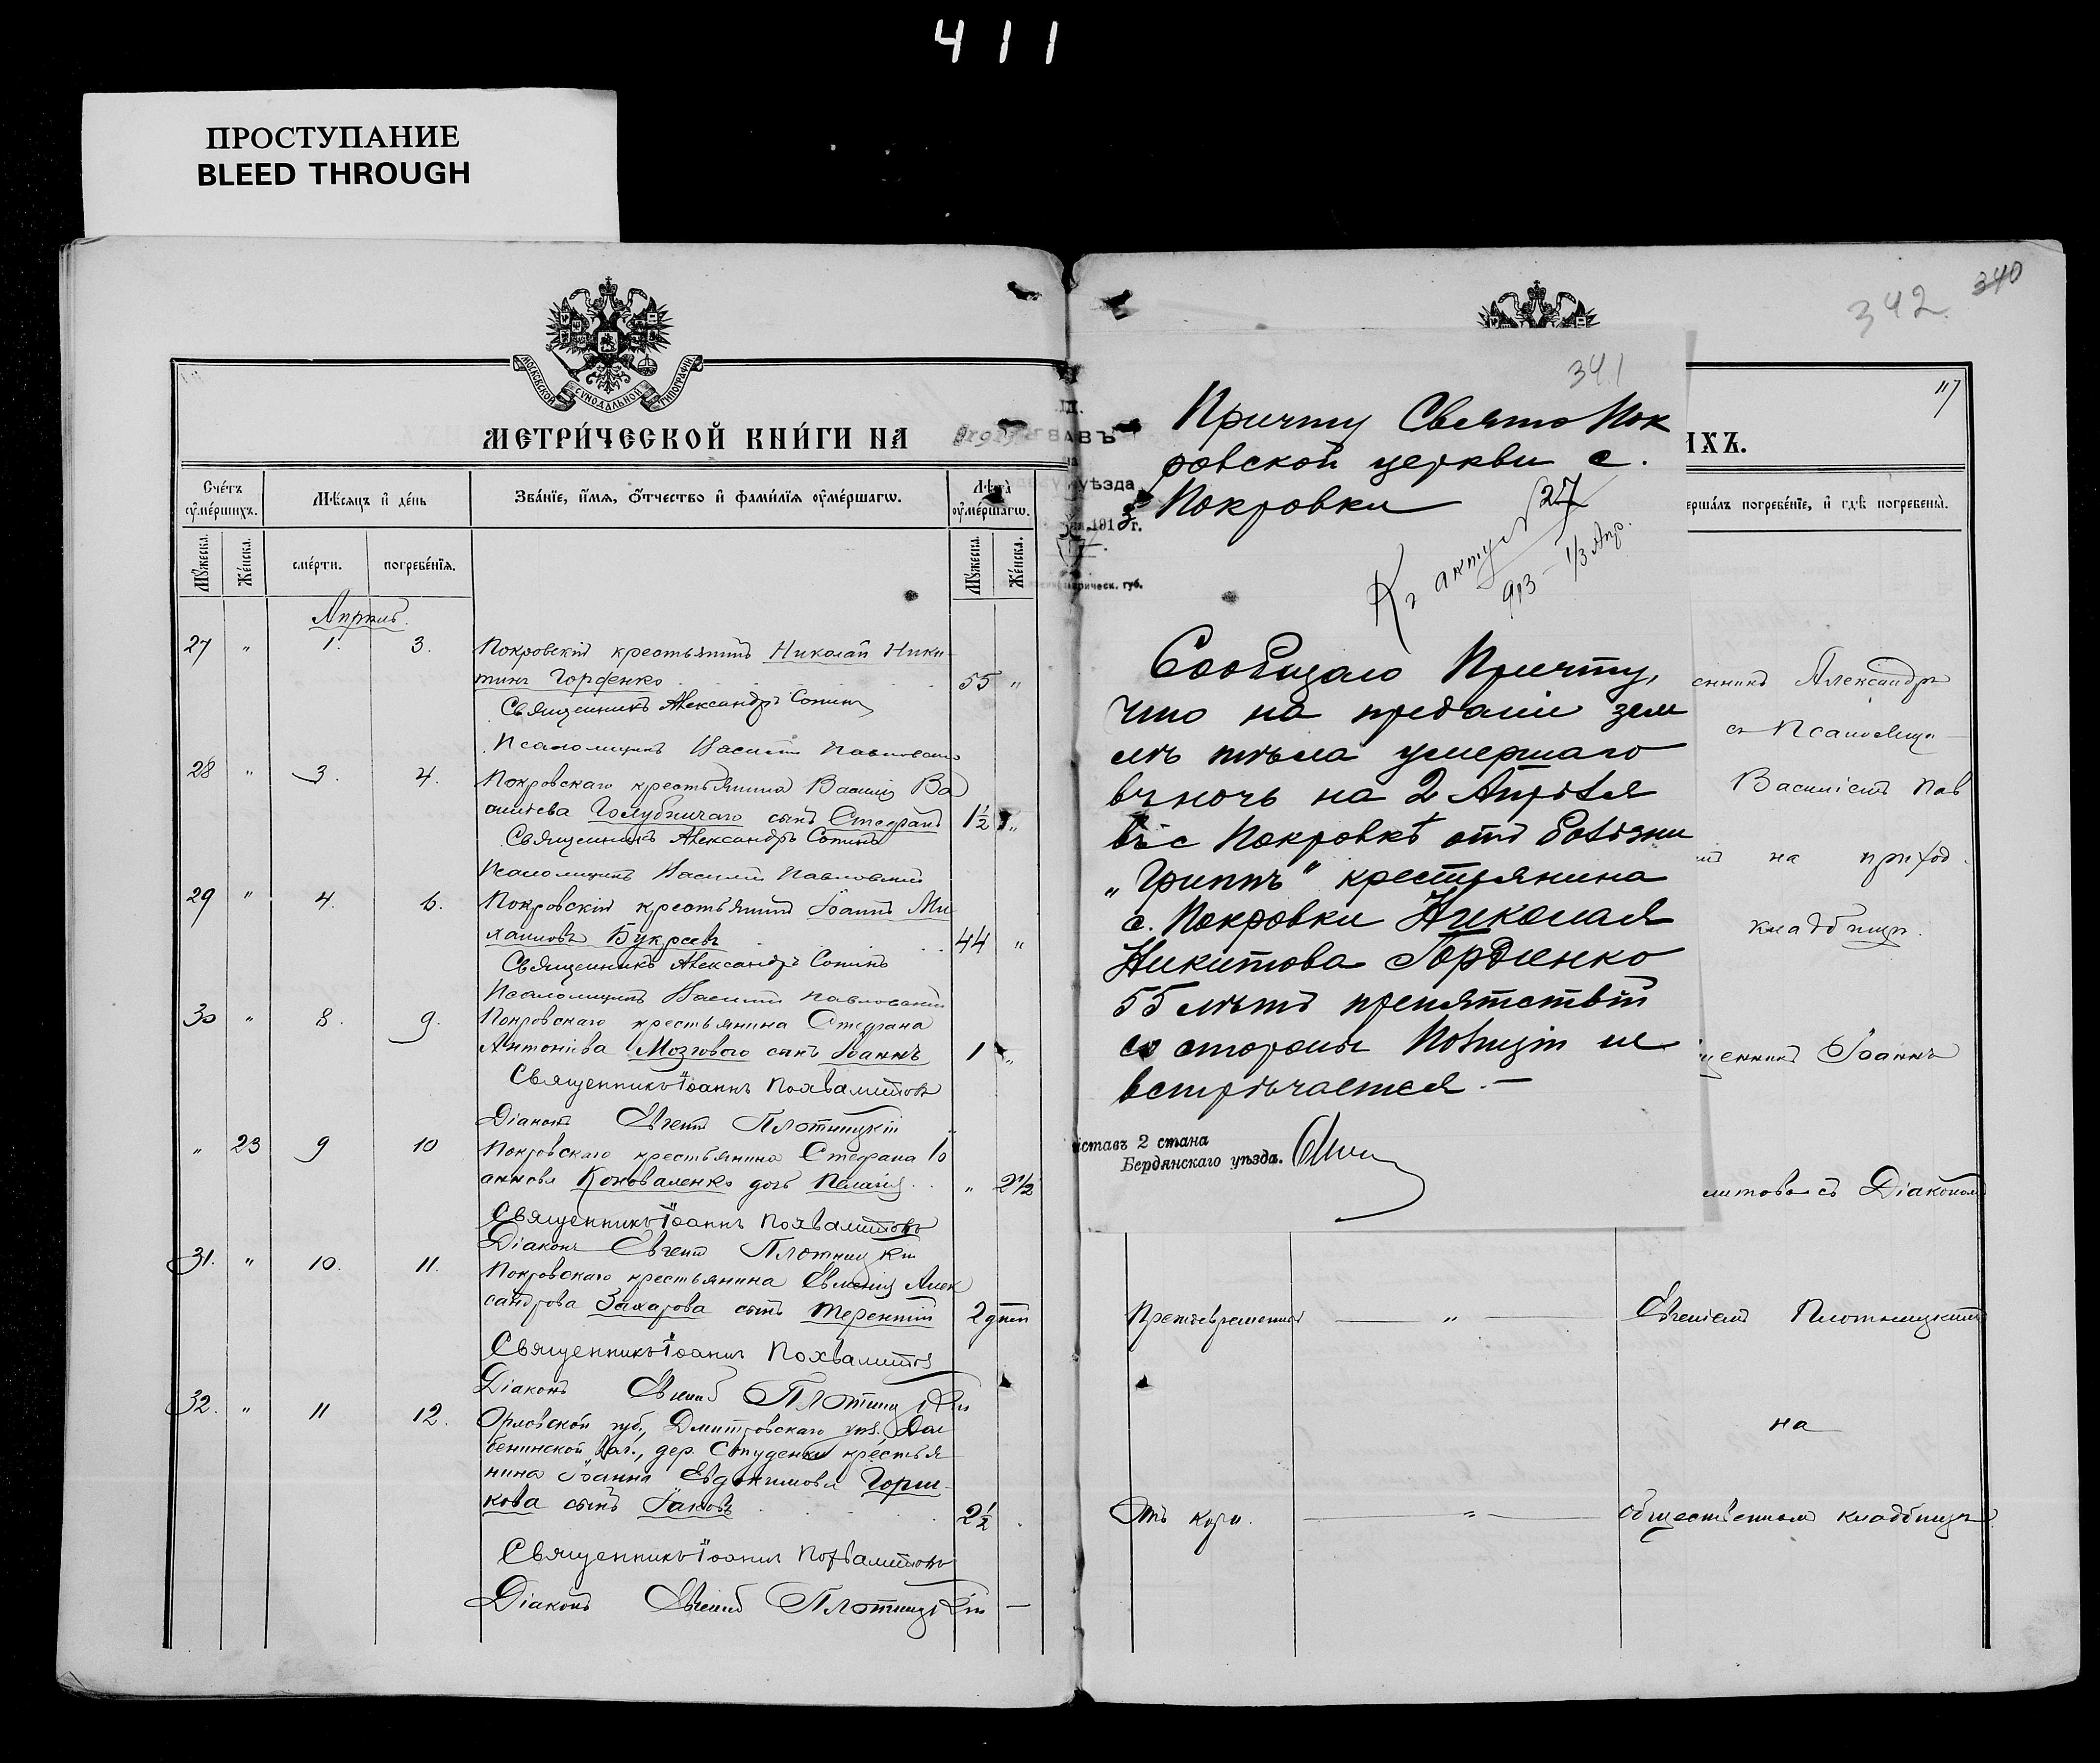 411
ПРОСТУПАНИЕ
BLEED THROUGH
МОСКОВСКОЙ СѴНОДАЛЬНОЙ ТИПОГРАФІИ
МЕТРИ́ЧЕСКОЙ КНИ́ГИ НА
Сче́тъ ᲂу҆ме́ршихъ.
Мѣ́сяцъ и҆ де́нь
Зва́нїе, и҆́мѧ, ѻ҆́тчество и҆ фами́лїѧ ᲂу҆ме́ршагѡ.
Лѣ́та ᲂу҆ме́ршагѡ.
Мꙋ́жеска.
Же́нска.
сме́рти.
погребе́нїѧ.
Мꙋ́жеска.
Же́нска.
Апрѣль.
27 " 1. 3. Покровскій крестьянинъ Николай Ники-
тинъ Горденко 55 "
Священникъ Александръ Сопинъ
Псаломщикъ Василій Павловскій
28 " 3. 4. Покровскаго крестьянина Василія Ва
сильева Голубничаго сынъ Стефанъ 1½ "
Священникъ Александръ Сопинъ
Псаломщикъ Василій Павловскій
29 " 4. 6. Покровскій крестьянинъ Іоаннъ Ми-
хаиловъ Букреевъ 44 "
Священникъ Александръ Сопинъ
Псаломщикъ Василій Павловскій
30 " 8. 9. Покровскаго крестьянина Стефана
Антоніева Мозгового сынъ Іоаннъ 1 "
Священникъ Іоаннъ Похвалитовъ
Діаконъ Евгеній Плотницкій
" 23 9 10 Покровскаго крестьянина Стефана Іо
аннова Коноваленко дочь Пелагія " 2½
Священникъ Іоаннъ Похвалитовъ
Діаконъ Евгеній Плотницкій
31. " 10. 11. Покровскаго крестьянина Евменія Алек
сандрова Захарова сынъ Терентій 2 дней
Священникъ Іоаннъ Похвалитовъ
Діаконъ Евгеній Плотницкій
32. " 11 12. Орловской губ., Дмитровскаго уѣз.
вол., дер. Студенки крестья
нина Іоанна Евдокимова Горш-
кова сынъ Іаковъ 2½
Священникъ Іоаннъ Похвалитовъ
Діаконъ Евгеній Плотницкій —
342. 340
117
341
ИХЪ.
уѣзда
1913 г.
губ.
Причту Свято Пок
ровской церкви с.
Покровки
Къ акту № 27
913 – 1/3 Апр.
Сообщаю Причту,
что на преданіе зем
лѣ тѣла умершаго
въ ночь на 2 Апрѣля
въ с Покровкѣ отъ болѣзни
„Гриппъ" крестьянина
с. Покровки Николая
Никитова Гордіенко
55 лѣтъ препятствій
со стороны Полиціи не
встрѣчается. —
иставъ 2 стана
Бердянскаго уѣзда.
ерша́лъ погребе́нїе, и҆ гдѣ̀ погребены̀.
енникъ Александръ
съ Псаломщи-
Василіемъ Пав
на приход.
кладбищѣ.
щенникъ Іоаннъ
литовъ съ Діакономъ
Преждевременный " Евгеніемъ Плотницкимъ
на
Отъ кори. " общественномъ кладбищѣ.